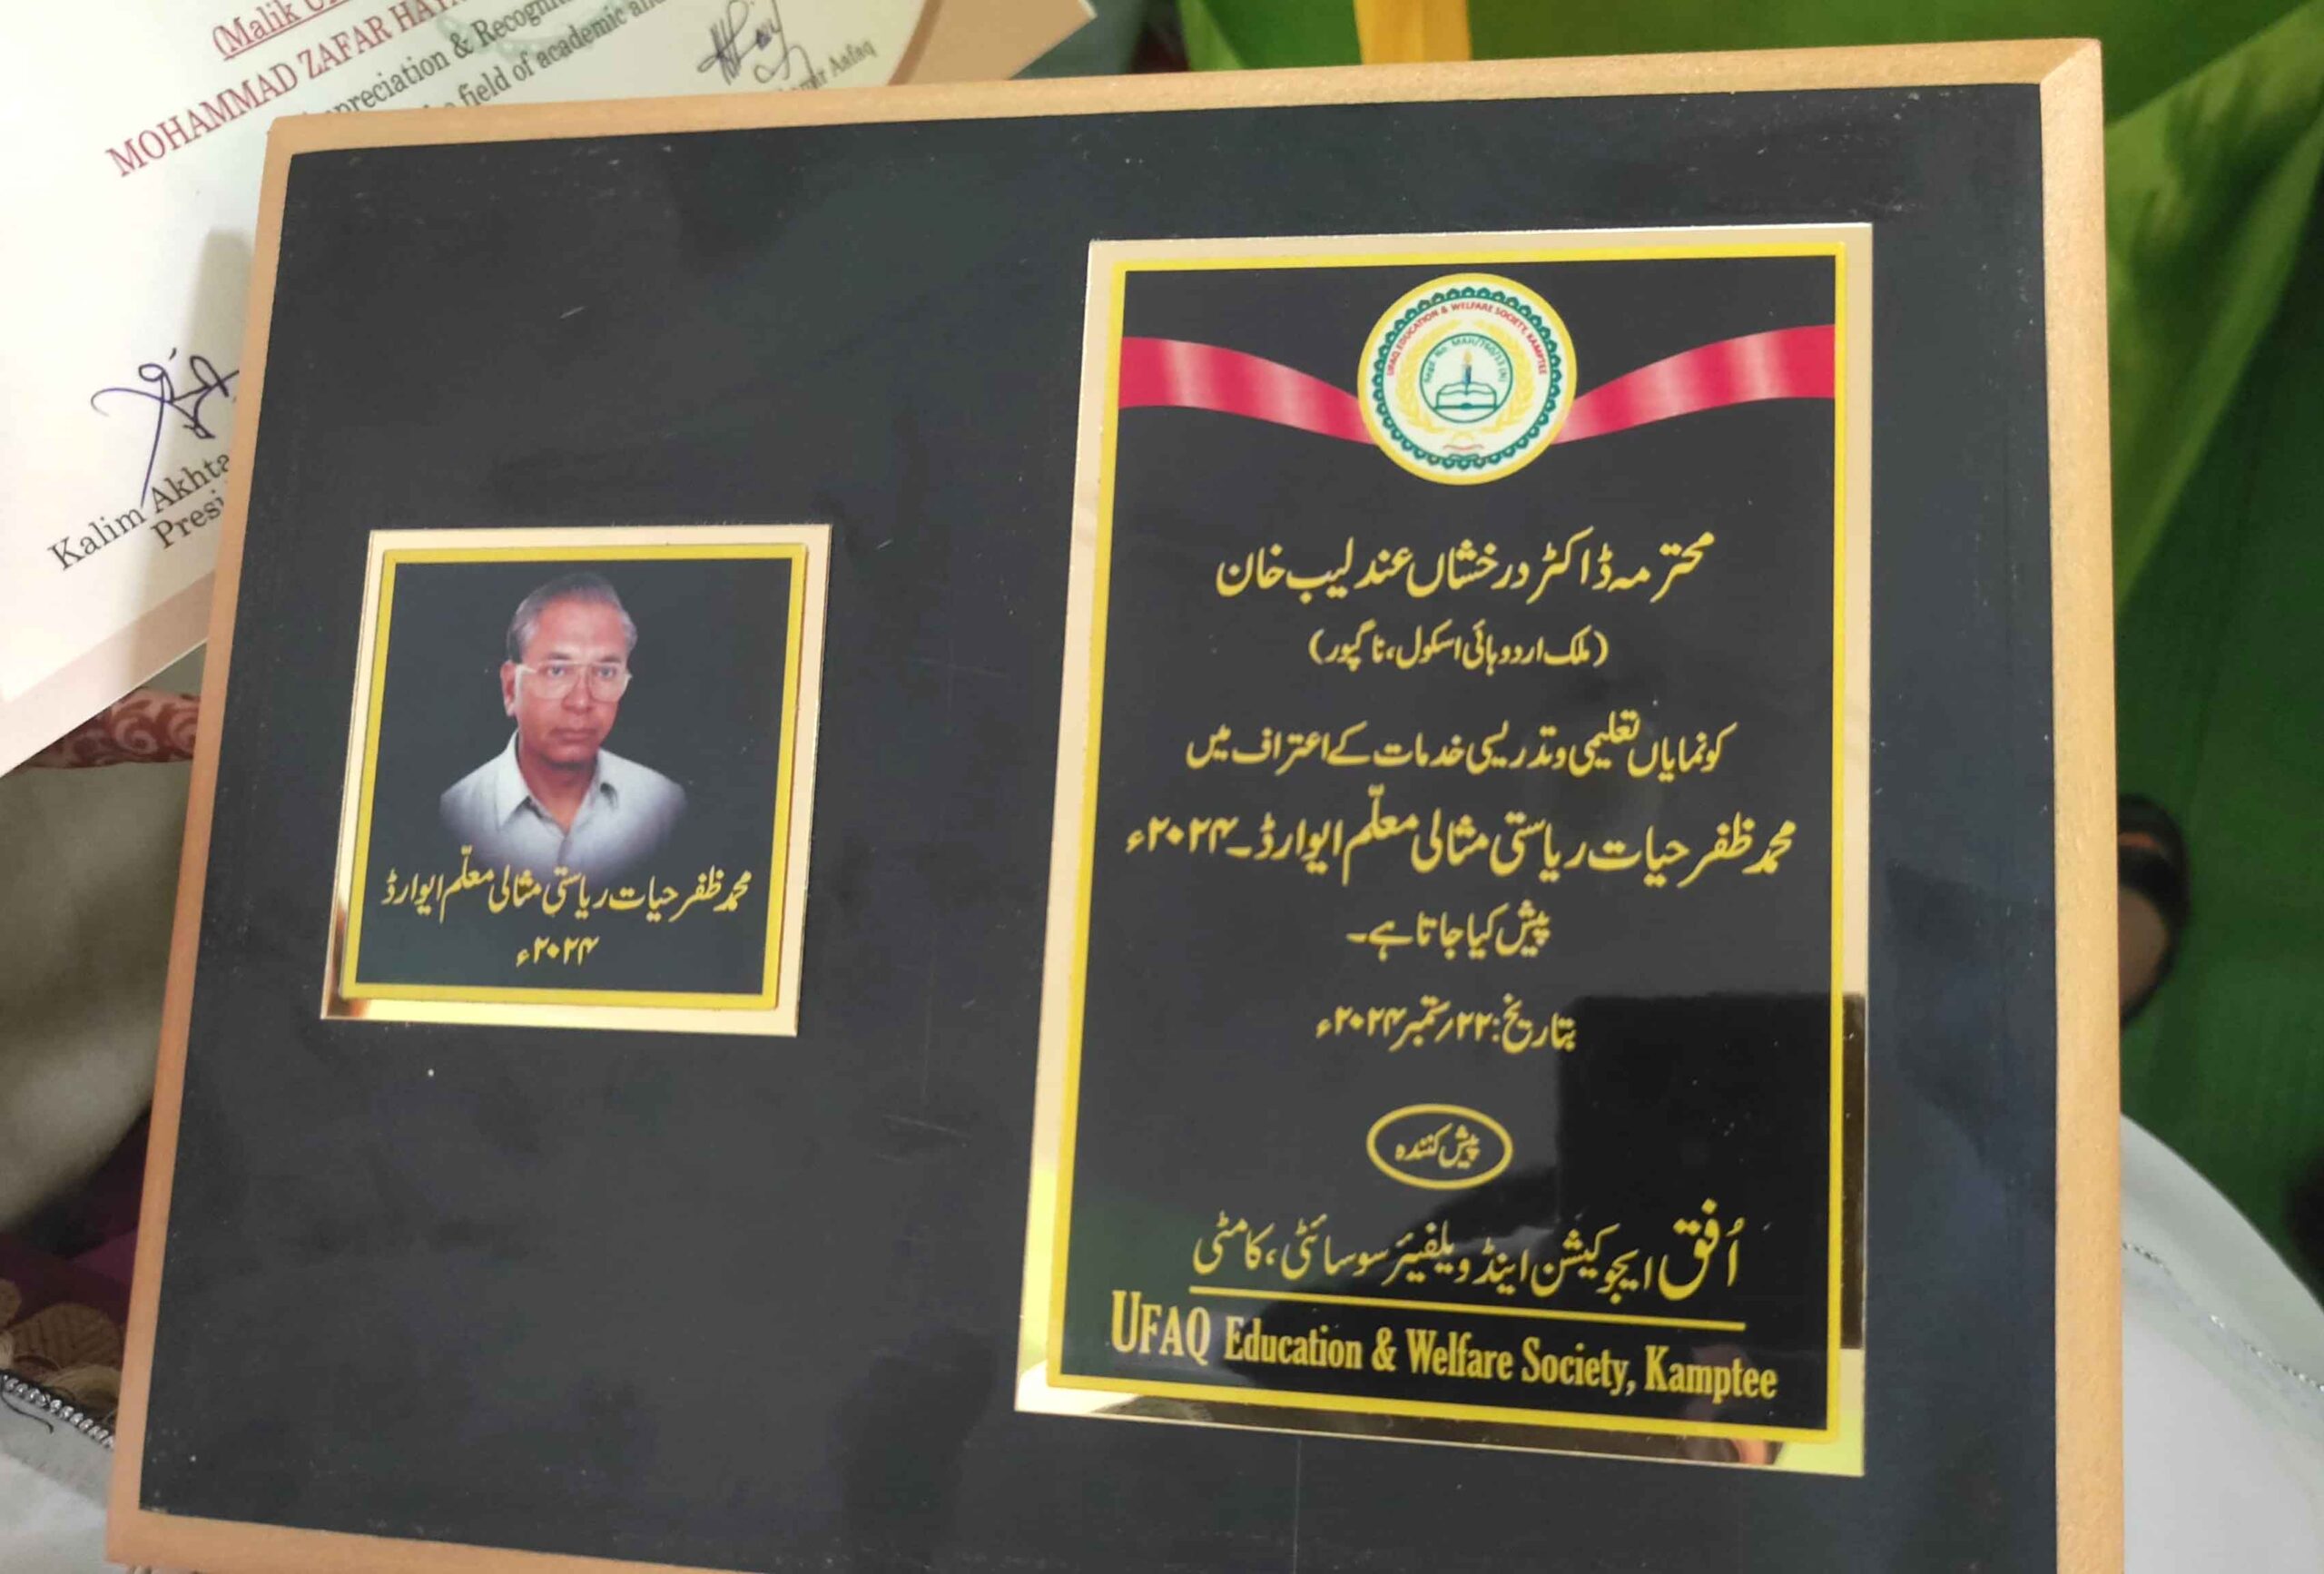 (Malik
MOHAMMAD ZAFAR
Appreciation &
field of academic
Aafaq
Kalim Akhta
Presi
UFAQ EDUCATION & WELFARE SOCIETY, KAMPTEE
محترمہ ڈاکٹر درخشاں عندلیب خان
(ملک اردو ہائی اسکول، ناگپور)
کو نمایاں تعلیمی و تدریسی خدمات کے اعتراف میں
محمد ظفر حیات ریاستی مثالی معلّم ایوارڈ۔۲۰۲۴ء
پیش کیا جاتا ہے۔
بتاریخ: ۲۲؍ستمبر ۲۰۲۴ء
پیش کنندہ
اُفق ایجوکیشن اینڈ ویلفیئر سوسائٹی، کامٹی
UFAQ Education & Welfare Society, Kamptee
محمد ظفر حیات ریاستی مثالی معلّم ایوارڈ
۲۰۲۴ء